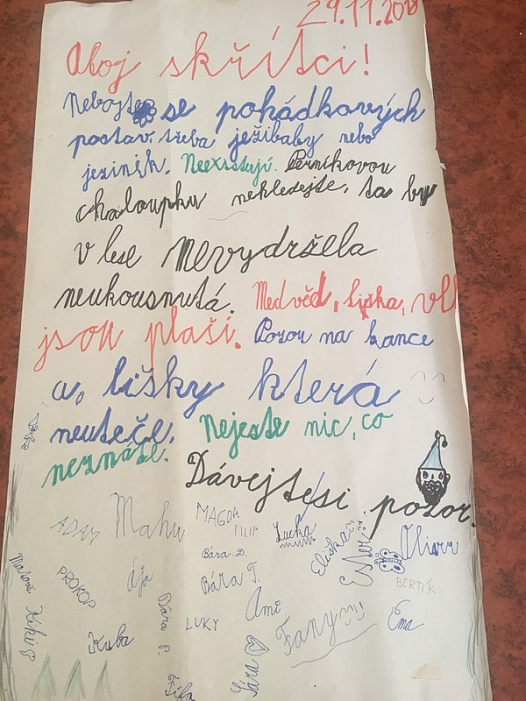 29.11.2018
Ahoj skřítci!
Nebojte se pohádkových
postav, třeba ježibaby nebo
jezinék. Neexistují. Perníkovou
chaloupku nehledejte, ta by
v lese nevydržela
neukousnutá. Medvěd, liška, vlk
jsou plaší. Pozor na kance
a lišky která
neuteče. Nejeste nic, co
neznáte.
Dávejte si pozor.
ADAM Mahu MAGDA FILIP Lucka Eliška Ester Oliver
Bára D.
PROKOP Ája Bára T. BERTÍK
Dára P. LUKY Ami Fany Ema
Kiki Kuba Sára